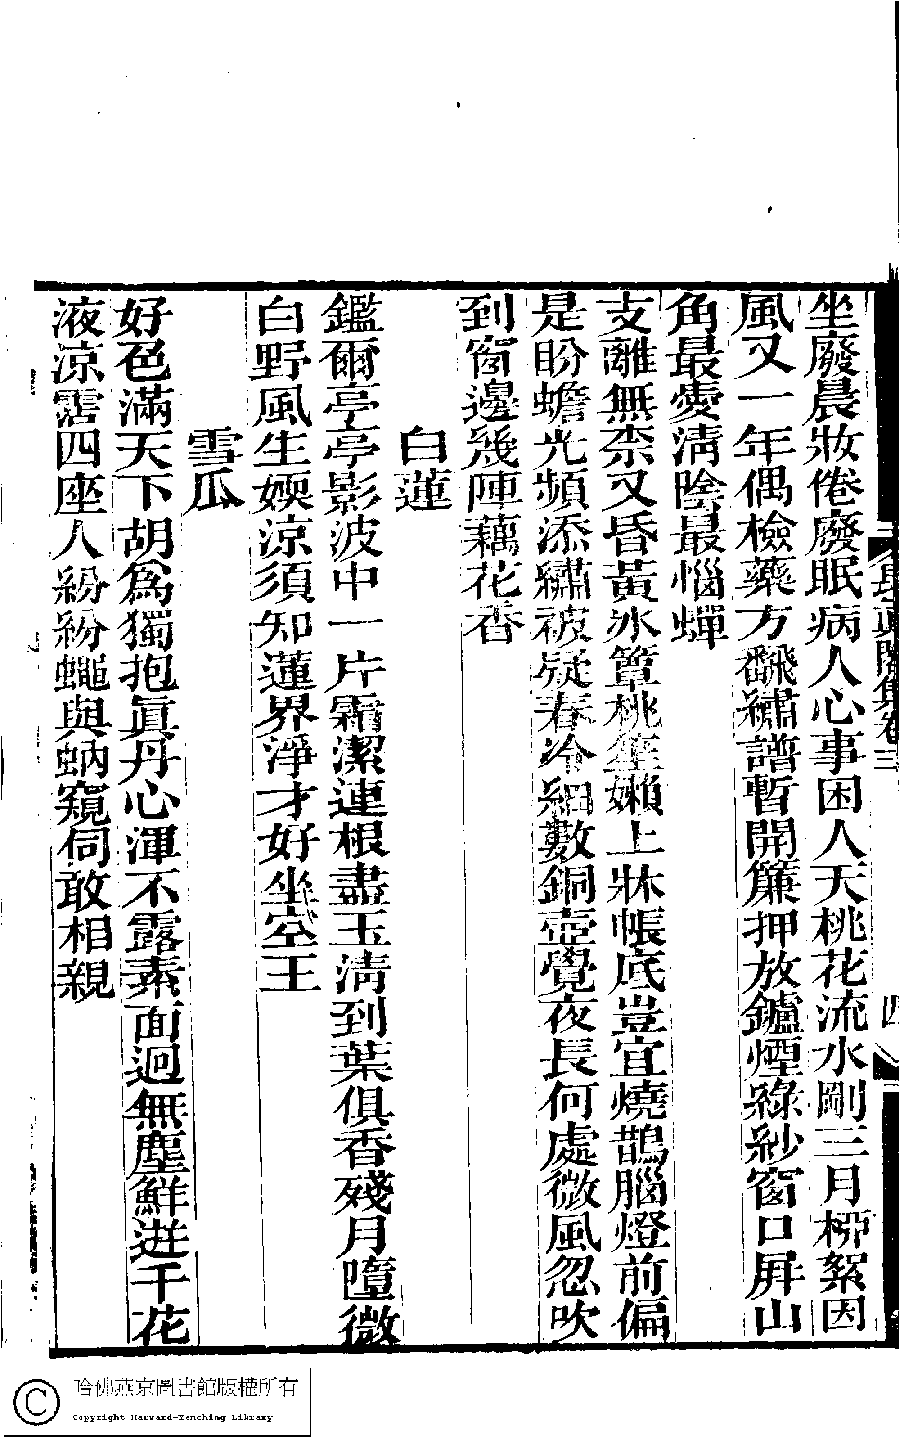 坐廢晨妝倦廢眠病人心事困人天桃花流水剛三月柳絮因
風又一年偶檢藥方翻繡譜暫開簾押放鑪煙綠紗窗口屛山
角最愛淸陰最惱蟬
支離無柰又昏黃冰簟桃笙嬾上牀帳底豈宜燒鵲腦燈前偏
是盼蟾光頻添繡被疑春冷細數銅壺覺夜長何處微風忽吹
到窗邊幾陣藕花香
白蓮
鑑爾亭亭影波中一片霜潔連根盡玉淸到葉俱香殘月墮微
白野風生嫩涼須知蓮界淨才好坐空王
雪瓜
好色滿天下胡爲獨抱眞丹心渾不露素面迥無塵鮮迸千花
液涼霑四座人紛紛蠅與蚋窺伺敢相親
長眞閣集卷三
四
哈佛燕京圖書館版權所有
Copyright Harvard-Yenching Library